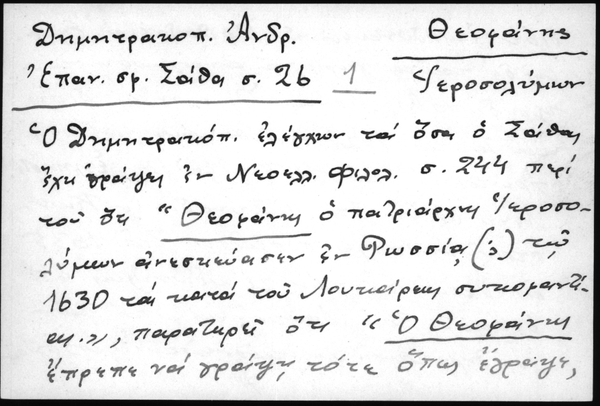 Δημητρακοπ. Ἀνδρ. Θεοφάνης
Ἐπαν. σφ. Σάθα σ. 26 1 Ἱεροσολύμων
Ὁ Δημητρακόπ. ἐλέγχων τά ὅσα ὁ Σάθας
ἔχει γράψει ἐν Νεοελλ. φιλολ. σ. 244 περί
τοῦ ὅτι "Θεοφάνης ὁ πατριάρχης Ἱεροσο-
λύμων ἀνεσκεύασεν ἐν Ρωσσίᾳ (;) τῷ
1630 τά κατά τοῦ Λουκάρεως συκοφαντί-
ας», παρατηρεῖ ὅτι "Ὁ Θεοφάνης
ἔπρεπε νά γράψῃ τότε ὅπως ἔγραψε,